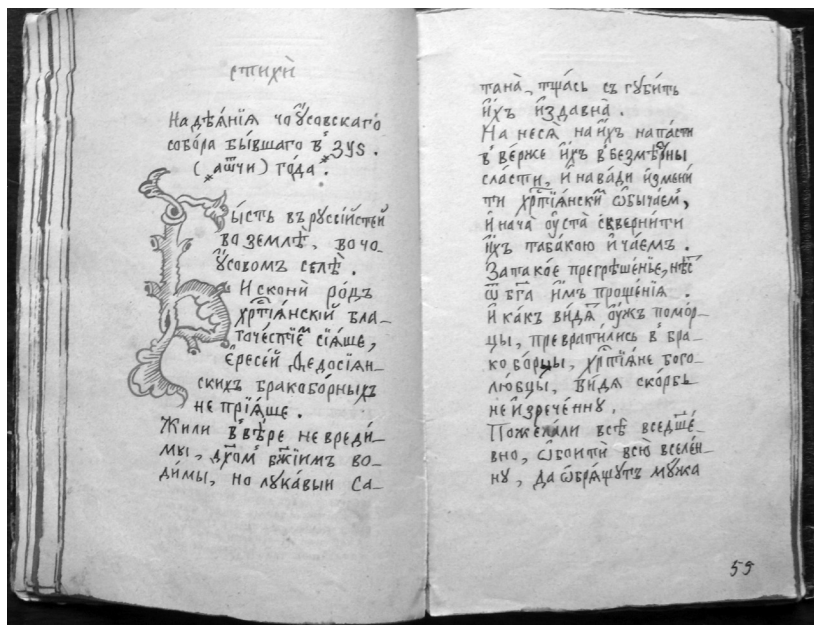 стихѝ
На дѣѧ́нїѧ чоу́совскаго
собо́ра бы́вшаго в̾ зуѕ.
(҂аѿчи) го́да.
Бы́сть въ рꙋссі́йстей
во землѐ, во чо-
у́совомъ селѐ.
И сконѝ ро́дъ
хрⷭ҇тїѧ́нскїй бла-
точе́стїемъ сїѧ́ше,
є́ресей Ѳедосїѧн-
скихъ бракобо́рныхъ
не прїѧ́ше.
Жили в̾ вѣ́ре не вреди́-
мы, дх҃ом̾ бж҃їимъ во-
ди́мы, но лꙋка́выи са-
танà, тща́сь съгꙋби́ть
и҆́хъ и҆здавнà.
На несѧ̀ на и҆́хъ напа́сти
в̾ ве́рже и҆́хъ в̾ безмѣ́рны
сла́сти, и҆ нава́ди и҆змени́
ти хрⷭ҇тїѧ́нскїй ѡ҆бы́чаем̾,
и҆ нача̀ ᲂу҆ста̀ скверни́ти
и҆́хъ таба́кою и҆ ча́емъ.
За тако́е прегрѣше́нїе, нѣ́сⷭ҇
ѿ бг҃а и҆́мъ проще́нїѧ.
И ка́къ ви́дѧ ᲂу҆́жъ помо́р-
цы, преврати́лись в̾ бра-
ко бо́рцы, хрⷭ҇тїѧ́не бого-
лю́бцы, ви́дѧ ско́рбь
не и҆зрече́ннꙋ.
Пожела́ли всѣ̀ вседше́-
вно, ѡ҆боитѝ всю̀ вселе́н-
нꙋ, да ѡ҆брѧ́щꙋтъ мꙋ́жа
59